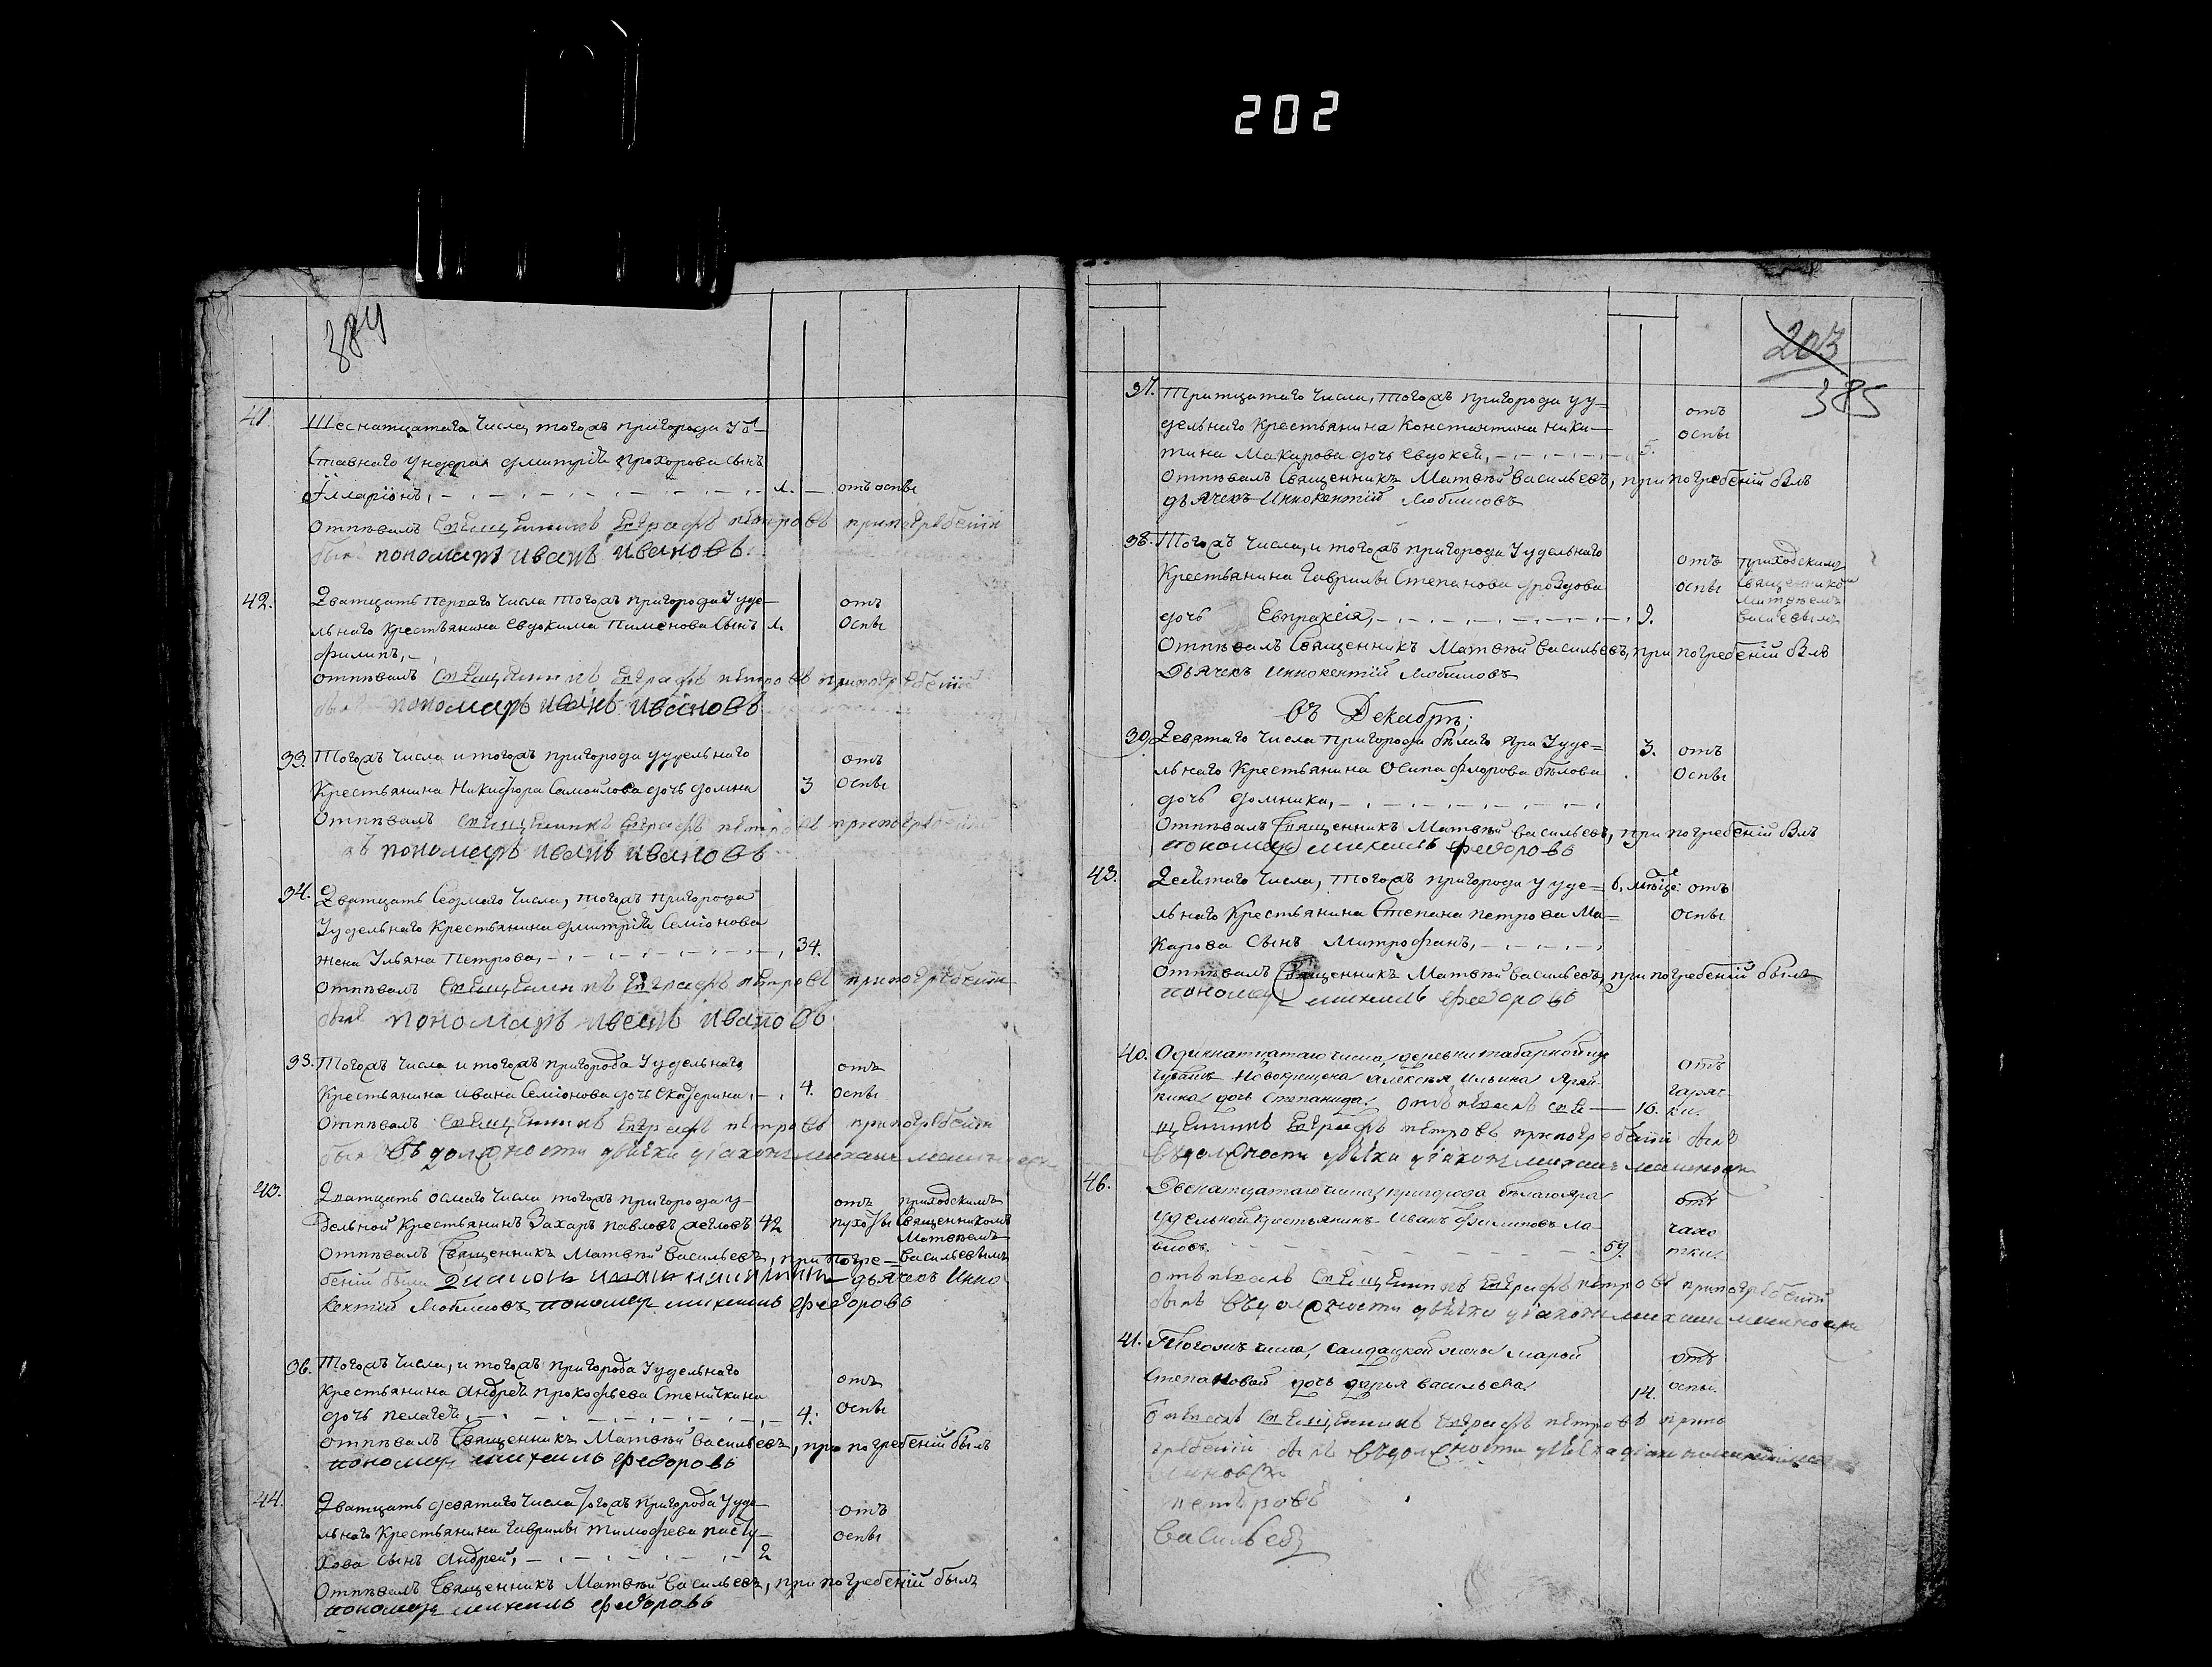 202
384
41. Шеснатцатаго Числа, тогожъ пригорода Уо-
ставнаго Ундера Дмитрія Прохорова сынъ
Їлларіонъ, 1. отъ оспы
Отпѣвалъ Священникъ Евграфъ Петровъ припогребеніи
былъ пономарь Иванъ Ивановъ
42. Дватцать перваго Числа тогожъ пригорода Удѣ-
льнаго Крестьянина Евдокима Пименова сынъ 1. отъ Оспы
Филипъ,
Отпѣвалъ Священникъ Евграфъ Петровъ припогребеніи
былъ пономарь Иванъ Ивановъ
33. Тогожъ Числа и тогожъ пригорода Удельнаго
Крестьянина Никифора Самойлова дочь Домна 3 отъ Оспы
Отпѣвалъ Священникъ Евграфъ Петровъ припогребеніи
пономарь Иванъ Ивановъ
34. Дватцать Седмаго Числа, тогожъ пригорода
Удельнаго Крестьянина Дмитрія Семіонова
жена Ульяна Петрова, 34.
Отпѣвалъ Священникъ Евграфъ Петровъ припогребеніи
былъ пономарь Иванъ Ивановъ
Тогожъ Числа и тогожъ пригорода Удельнаго
Крестьянина Ивана Семіонова дочь Екатерина, 4. отъ оспы
Отпѣвалъ Священникъ Евграфъ Петровъ припогребеніи
былъ въ должности
43.
Дватцать осмаго Числа тогожъ пригорода У-
дельной Крестьянинъ Захаръ Павловъ 42 отъ приходскимъ
Священникомъ
Матвѣемъ
Отпѣвалъ Священникъ Матвѣй Васильевъ, при погре- Васильевымъ
беніи были дьячекъ Инно
кентій Любимовъ пономарь Михаилъ Федоровъ
36. Тогожъ Числа, и тогожъ пригорода Удельнаго
Крестьянина Андрея Прокофьева Стеничкина
дочь Пелагея, 4. отъ Оспы
Отпѣвалъ Священникъ Матвѣй Васильевъ, при погребеніи былъ
пономарь Михаилъ Федоровъ
44. Дватцать девятаго Числа тогожъ пригорода Уде-
льнаго Крестьянина Гаврилы Тимофѣева Пасту-
хова сынъ Андрей, 2 отъ оспы
Отпѣвалъ Священникъ Матвѣй Васильевъ, при погребеніи былъ
пономарь Михаилъ Федоровъ
203
385
37. Тритцатаго Числа, тогожъ пригорода Уу-
дельнаго Крестьянина Константина Ники-
тина Макарова дочь Евдокея, 5. отъ оспы
Отпѣвалъ Священникъ Матвѣй Васильевъ, при погребеніи былъ
дьячекъ Иннокентій Любимовъ
38. Тогожъ Числа, и тогожъ пригорода Удельнаго
Крестьянина Гаврилы Степанова Дроздова отъ оспы приходскимъ
Священникомъ
Матвѣемъ
Васильевымъ
дочь Евпраксія, 9.
Отпѣвалъ Священникъ Матвѣй Васильевъ, при погребеніи былъ
Дьячекъ Иннокентій Любимовъ
въ Декабрѣ;
39. Девятаго Числа пригорода бѣлаго Яра Уде-
льнаго Крестьянина Осипа Федорова Бѣлова 3. отъ Оспы
дочь Домника,
Отпѣвалъ Священникъ Матвѣй Васильевъ, при погребеніи былъ
пономарь Михаилъ Федоровъ
43. Десятаго Числа, тогожъ пригорода Уде- 6, мѣсяце отъ
льнаго Крестьянина Степана Петрова Ма- оспы
карова сынъ Митрофанъ,
Отпѣвалъ Священникъ Матвѣй Васильевъ, при погребеніи былъ
пономарь Михаилъ Федоровъ
40. Одиннатцатаго числа, деревни
Новокрещена Алексѣя Ильина отъ
дочь Степанида. отпѣвалъ Свя 16. гарячки.
щенникъ Евграфъ Петровъ припогребеніи былъ
въ должности
46. Двенатцатаго числа, пригорода бѣлаго яра
Удельной крестьянинъ Иванъ Филиповъ отъ чахотки.
59.
Отпѣвалъ Священникъ Евграфъ Петровъ припогребеніи
былъ въ должности
41. Тогожъ числа, Салдацкой жены Марѳы
Степановой дочь Дарья Васильева 14. отъ оспы.
Отпѣвалъ Священникъ Евграфъ Петровъ припо
гребеніи былъ въ должности
Петровъ
Васильевъ